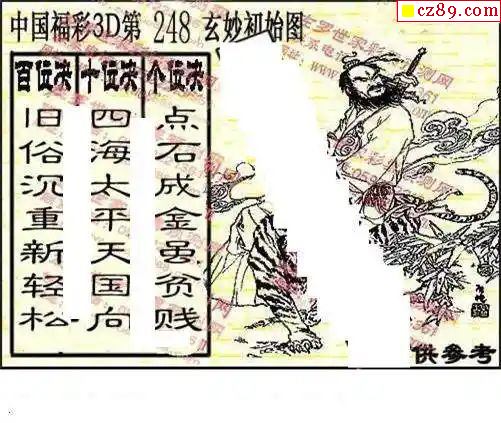 cz89.com
中国福彩3D第 248 玄妙初始图
百位决 十位决 个位决
旧俗沉重新轻松
四海太平天国向
点石成金虽贫贱
供参考